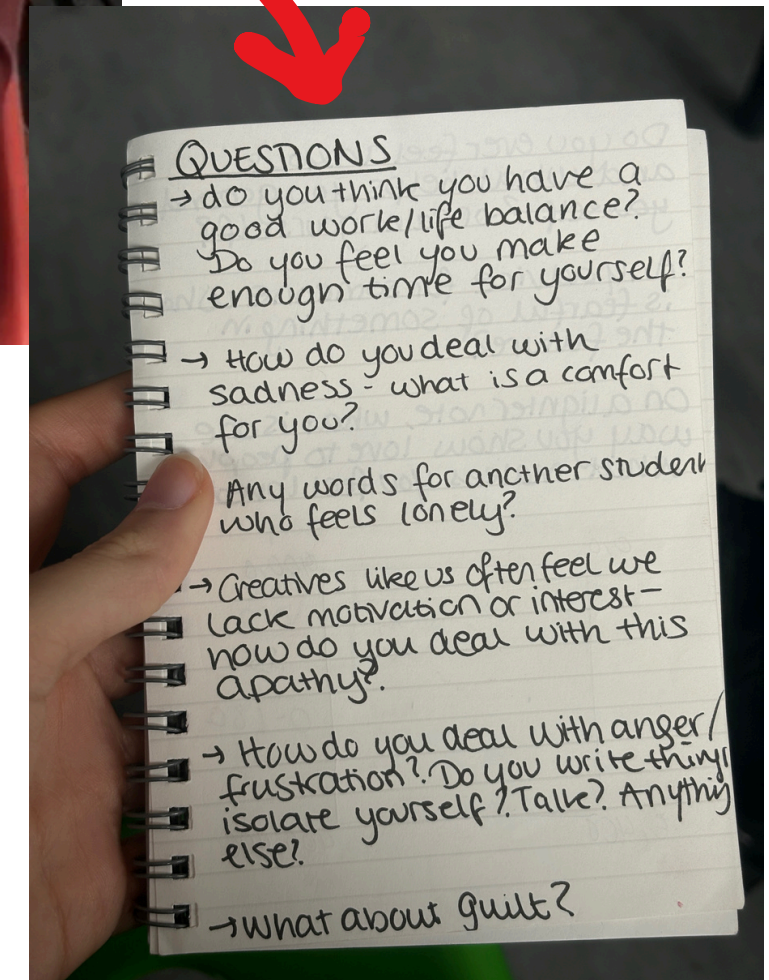 QUESTIONS
→ do you think you have a
good work/life balance?
Do you feel you make
enough time for yourself?
→ How do you deal with
sadness - what is a comfort
for you?
Any words for another student
who feels lonely?
→ Creatives like us often feel we
lack motivation or interest-
how do you deal with this
apathy?
→ How do you deal with anger/
frustration? Do you write things
isolate yourself? Talk? Anything
else?
→ What about guilt?